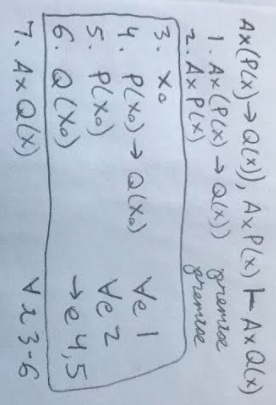 Ax(P(x) → Q(x)), AxP(x) ⊢ AxQ(x)
1. Ax(P(x) → Q(x)) premise
2. AxP(x) premise
3. x₀
4. P(x₀) → Q(x₀) ∀e 1
5. P(x₀) ∀e 2
6. Q(x₀) →e 4,5
7. AxQ(x) ∀i 3-6